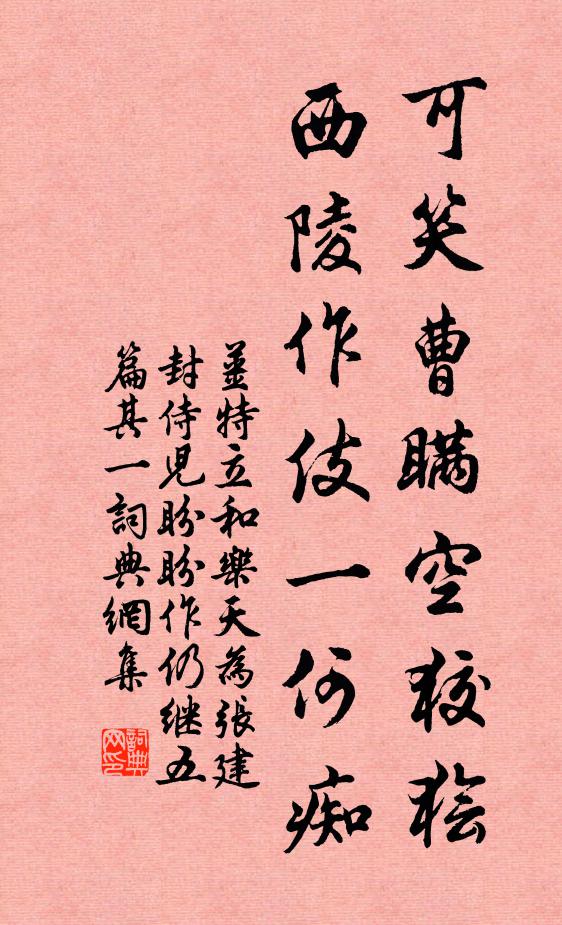 可笑曹瞞空狡獪
西陵作伎一何痴
姜特立和樂天為張建
封侍児盼盼作仍継五
篇其一詞典網集
詞典网印